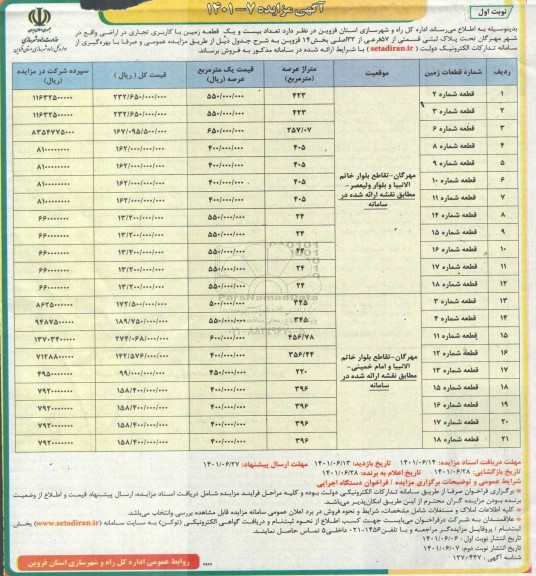 نوبت اول
آگهی مزایده ۷-۱۴۰۱
بدینوسیله به اطلاع می‌رساند اداره کل راه و شهرسازی استان قزوین در نظر دارد تعداد بیست و یک قطعه زمین با کاربری تجاری در اراضی واقع در
شهر مهرگان تحت پلاک ثبتی قسمتی از ۵۷فرعی از ۳۳اصلی بخش۱۴ قزوین به شرح جدول ذیل از طریق مزایده عمومی و صرفا با بهره‌گیری از
سامانه تدارکات الکترونیک دولت (setadiran.ir) با شرایط ارائه شده در سامانه مذکور به فروش برساند.
ردیف شماره قطعات زمین موقعیت متراژ عرصه (مترمربع) قیمت یک مترمربع عرصه (ریال) قیمت کل (ریال) سپرده شرکت در مزایده (ریال)
۱ قطعه شماره ۲ ۴۲۳ ۵۵۰/۰۰۰/۰۰۰ ۲۳۲/۶۵۰/۰۰۰/۰۰۰ ۱۱۶۳۲۵۰۰۰۰۰
۲ قطعه شماره ۳ ۴۲۳ ۵۵۰/۰۰۰/۰۰۰ ۲۳۲/۶۵۰/۰۰۰/۰۰۰ ۱۱۶۳۲۵۰۰۰۰۰
۳ قطعه شماره ۶ ۲۵۷/۰۷ ۶۵۰/۰۰۰/۰۰۰ ۱۶۷/۰۹۵/۵۰۰/۰۰۰ ۸۳۵۴۷۷۵۰۰۰
۴ قطعه شماره ۸ ۴۰۵ ۴۰۰/۰۰۰/۰۰۰ ۱۶۲/۰۰۰/۰۰۰/۰۰۰ ۸۱۰۰۰۰۰۰۰۰
۵ قطعه شماره ۹ ۴۰۵ ۴۰۰/۰۰۰/۰۰۰ ۱۶۲/۰۰۰/۰۰۰/۰۰۰ ۸۱۰۰۰۰۰۰۰۰
۶ قطعه شماره ۱۰ ۴۰۵ ۴۰۰/۰۰۰/۰۰۰ ۱۶۲/۰۰۰/۰۰۰/۰۰۰ ۸۱۰۰۰۰۰۰۰۰
۷ قطعه شماره ۱۱ ۴۰۵ ۴۰۰/۰۰۰/۰۰۰ ۱۶۲/۰۰۰/۰۰۰/۰۰۰ ۸۱۰۰۰۰۰۰۰۰
مهرگان-تقاطع بلوار خاتم
الانبیا و بلوار ولیعصر-
مطابق نقشه ارائه شده در
سامانه
۸ قطعه شماره ۱۴ ۲۴ ۵۵۰/۰۰۰/۰۰۰ ۱۳/۲۰۰/۰۰۰/۰۰۰ ۶۶۰۰۰۰۰۰۰
۹ قطعه شماره ۱۵ ۲۴ ۵۵۰/۰۰۰/۰۰۰ ۱۳/۲۰۰/۰۰۰/۰۰۰ ۶۶۰۰۰۰۰۰۰
۱۰ قطعه شماره ۱۶ ۲۴ ۵۵۰/۰۰۰/۰۰۰ ۱۳/۲۰۰/۰۰۰/۰۰۰ ۶۶۰۰۰۰۰۰۰
۱۱ قطعه شماره ۱۷ ۲۴ ۵۵۰/۰۰۰/۰۰۰ ۱۳/۲۰۰/۰۰۰/۰۰۰ ۶۶۰۰۰۰۰۰۰
۱۲ قطعه شماره ۱۸ ۲۴ ۵۵۰/۰۰۰/۰۰۰ ۱۳/۲۰۰/۰۰۰/۰۰۰ ۶۶۰۰۰۰۰۰۰
۱۳ قطعه شماره ۳ ۳۴۵ ۵۰۰/۰۰۰/۰۰۰ ۱۷۲/۵۰۰/۰۰۰/۰۰۰ ۸۶۲۵۰۰۰۰۰۰
۱۴ قطعه شماره ۴ ۳۴۵ ۵۵۰/۰۰۰/۰۰۰ ۱۸۹/۷۵۰/۰۰۰/۰۰۰ ۹۴۸۷۵۰۰۰۰۰
۱۵ قطعه شماره ۱۱ ۴۵۶/۷۸ ۶۰۰/۰۰۰/۰۰۰ ۲۷۴/۰۶۸/۰۰۰/۰۰۰ ۱۳۷۰۳۴۰۰۰۰۰
۱۶ قطعه شماره ۱۲ ۳۵۶/۴۴ ۴۰۰/۰۰۰/۰۰۰ ۱۴۲/۵۷۶/۰۰۰/۰۰۰ ۷۱۲۸۸۰۰۰۰۰
۱۷ قطعه شماره ۱۳ ۲۲۰ ۴۵۰/۰۰۰/۰۰۰ ۹۹/۰۰۰/۰۰۰/۰۰۰ ۴۹۵۰۰۰۰۰۰۰
۱۸ قطعه شماره ۱۵ ۳۹۶ ۴۰۰/۰۰۰/۰۰۰ ۱۵۸/۴۰۰/۰۰۰/۰۰۰ ۷۹۲۰۰۰۰۰۰۰
۱۹ قطعه شماره ۱۶ ۳۹۶ ۴۰۰/۰۰۰/۰۰۰ ۱۵۸/۴۰۰/۰۰۰/۰۰۰ ۷۹۲۰۰۰۰۰۰۰
۲۰ قطعه شماره ۱۷ ۳۹۶ ۴۰۰/۰۰۰/۰۰۰ ۱۵۸/۴۰۰/۰۰۰/۰۰۰ ۷۹۲۰۰۰۰۰۰۰
۲۱ قطعه شماره ۱۸ ۳۹۶ ۴۰۰/۰۰۰/۰۰۰ ۱۵۸/۴۰۰/۰۰۰/۰۰۰ ۷۹۲۰۰۰۰۰۰۰
مهرگان-تقاطع بلوار خاتم
الانبیا و امام خمینی-
مطابق نقشه ارائه شده در
سامانه
مهلت دریافت اسناد مزایده: ۱۴۰۱/۰۶/۱۴ تاریخ بازدید: ۱۴۰۱/۰۶/۱۳ مهلت ارسال پیشنهاد: ۱۴۰۱/۰۶/۲۷
تاریخ بازگشایی: ۱۴۰۱/۰۶/۲۸ تاریخ اعلام به برنده: ۱۴۰۱/۰۶/۲۸
شرایط عمومی و توضیحات برگزاری مزایده / فراخوان دستگاه اجرایی
برگزاری فراخوان صرفا از طریق سامانه تدارکات الکترونیکی دولت بوده و کلیه مراحل فرایند مزایده شامل دریافت اسناد مزایده، ارسال پیشنهاد قیمت و اطلاع از وضعیت
برنده بودن مزایده گران محترم از این طریق امکان‌پذیر می‌باشد.
کلیه اطلاعات املاک و مستغلات شامل مشخصات، شرایط و نحوه فروش در برد اعلان عمومی سامانه مزایده قابل مشاهده بررسی وانتخاب می‌باشد.
علاقمندان به شرکت درفراخوان می‌بایست جهت کسب اطلاع از نحوه ثبت‌نام و دریافت گواهی الکترونیکی (توکن) به سایت سامانه (www.setadiran.ir) بخش
ثبت‌نام / پروفایل مزایده‌گر مراجعه و یا باتلفن۱۴۵۶-۰۲۱ داخلی۵ تماس حاصل نمایند.
تاریخ انتشار نوبت اول: ۱۴۰۱/۰۶/۰۶
تاریخ انتشار نوبت دوم: ۱۴۰۱/۰۶/۰۷
شناسه آگهی: ۱۳۷۰۴۳۷
روابط عمومی اداره کل راه و شهرسازی استان قزوین